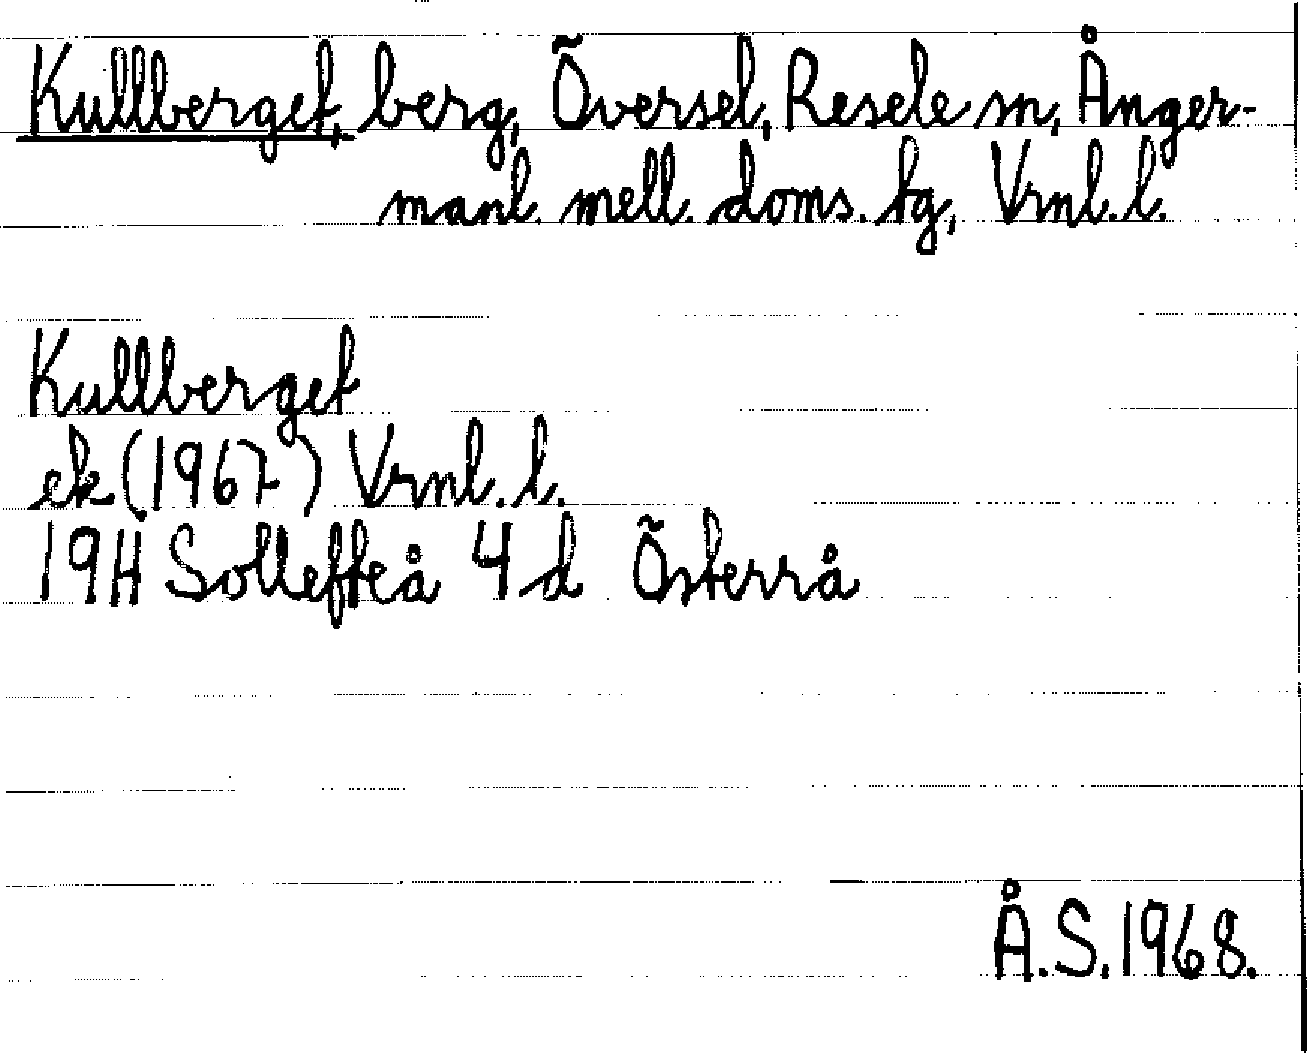 Kullberget, berg, Översel, Resele sn, Ånger-
manl. mell. doms. tg, Vrnl. l.
Kullberget
ek (1967) Vrnl. l.
19H Sollefteå 4d Österrå
Å.S. 1968.